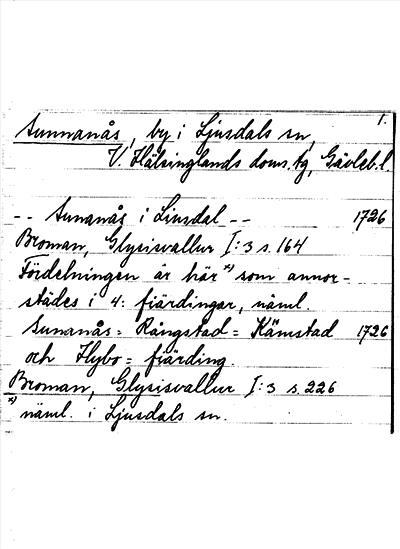 1.
Sunnanås, by i Ljusdals sn,
V. Hälsinglands doms.tg, Gävleb.l.
-- Sunanås i Liusdal -- 1726
Broman, Glysisvallur I:3 s. 164
Fördelningen är här *) som annor-
städes i 4: fiärdingar, näml.
Sunanås= Rångstad= Kämstad 1726
och Hybo= fiärding.
Broman, Glysisvallur I:3 s. 226
*) näml. i Ljusdals sn.